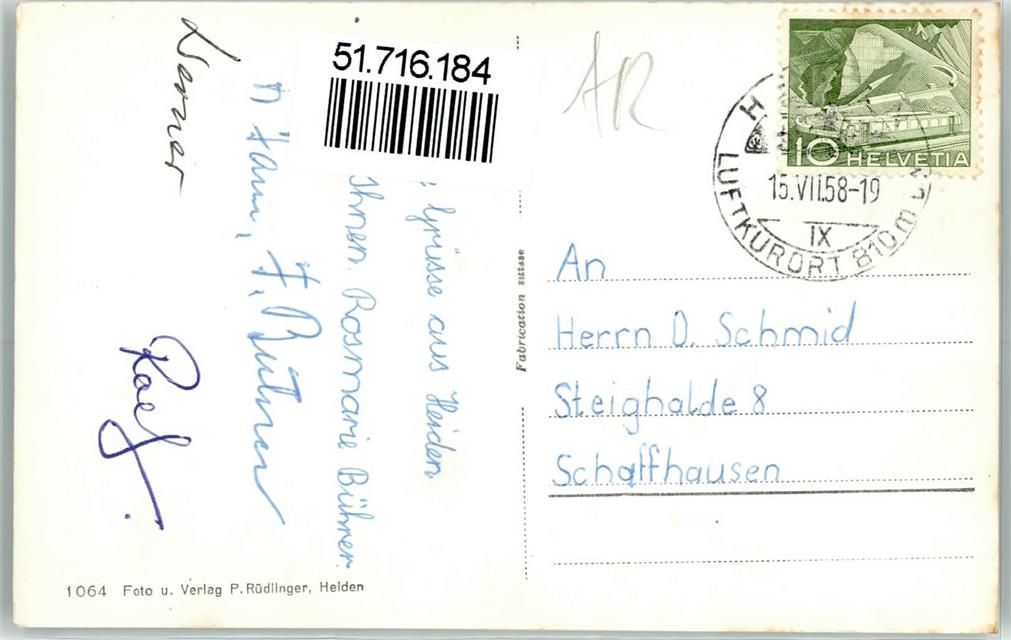 51.716.184
Grüsse aus Heiden
Ihnen. Rosmarie Bührer
Fam. F. Bührer
Werner
1064 Foto u. Verlag P. Rüdlinger, Heiden
Fabrication suisse
AR
10 HELVETIA
H
15.VII.58-19
IX
LUFTKURORT 810 m ü.
An
Herrn D. Schmid
Steighalde 8
Schaffhausen